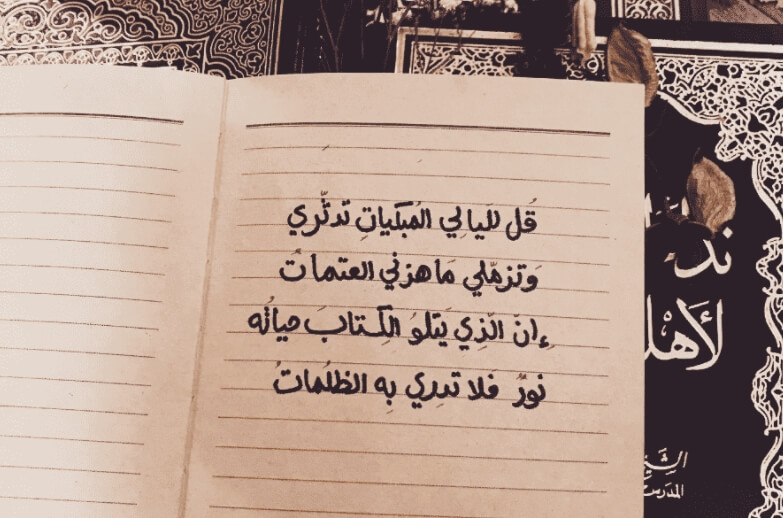 قُل للَيالِي المُبكَياتِ تدثَّري
وَتزمَّلي مَا هزني العتماتُ
إنَ الّذِي يَتلوُ الكِتابَ حياتُه
نورٌ فلا تدرِي بِه الظلُماتُ
ند
لأَهْل
الشيخ
المدرس